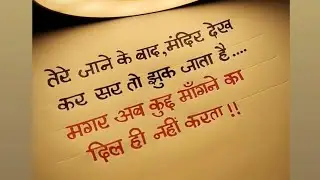 तेरे जाने के बाद,मंदिर देख
कर सर तो झुक जाता है ....
मगर अब कुछ माँगने का
दिल ही नहीं करता !!